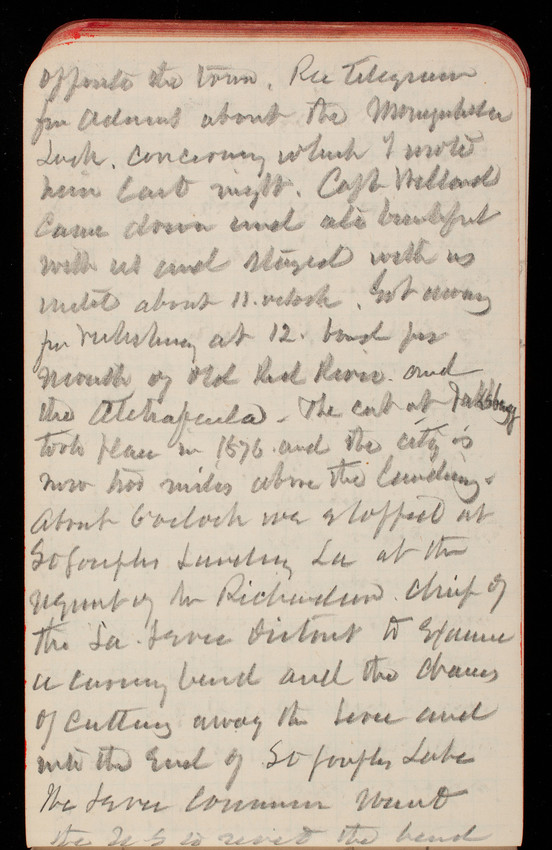 opposite the town. Rec Telegram
from Adams about the Monongahela
Lock. concerning which I wrote
him last night. Capt Willard
came down and ate breakfast
with us and stayed with us
until about 11. oclock. Got away
for Vicksburg at 12. bound for
mouth of Old Red River and
the Atchafalaya - The cut at Vicksburg
took place in 1876 and the city is
now two miles above the landing.
About 6 oclock we stopped at
St Josephs Landing La at the
request of Mr Richardson. chief of
the La. Levee District to Examine
a caving bend and the chances
of cutting away the Levee and
into the End of St Josephs Lake
The Levee Commrs want
the U S to revet the bend